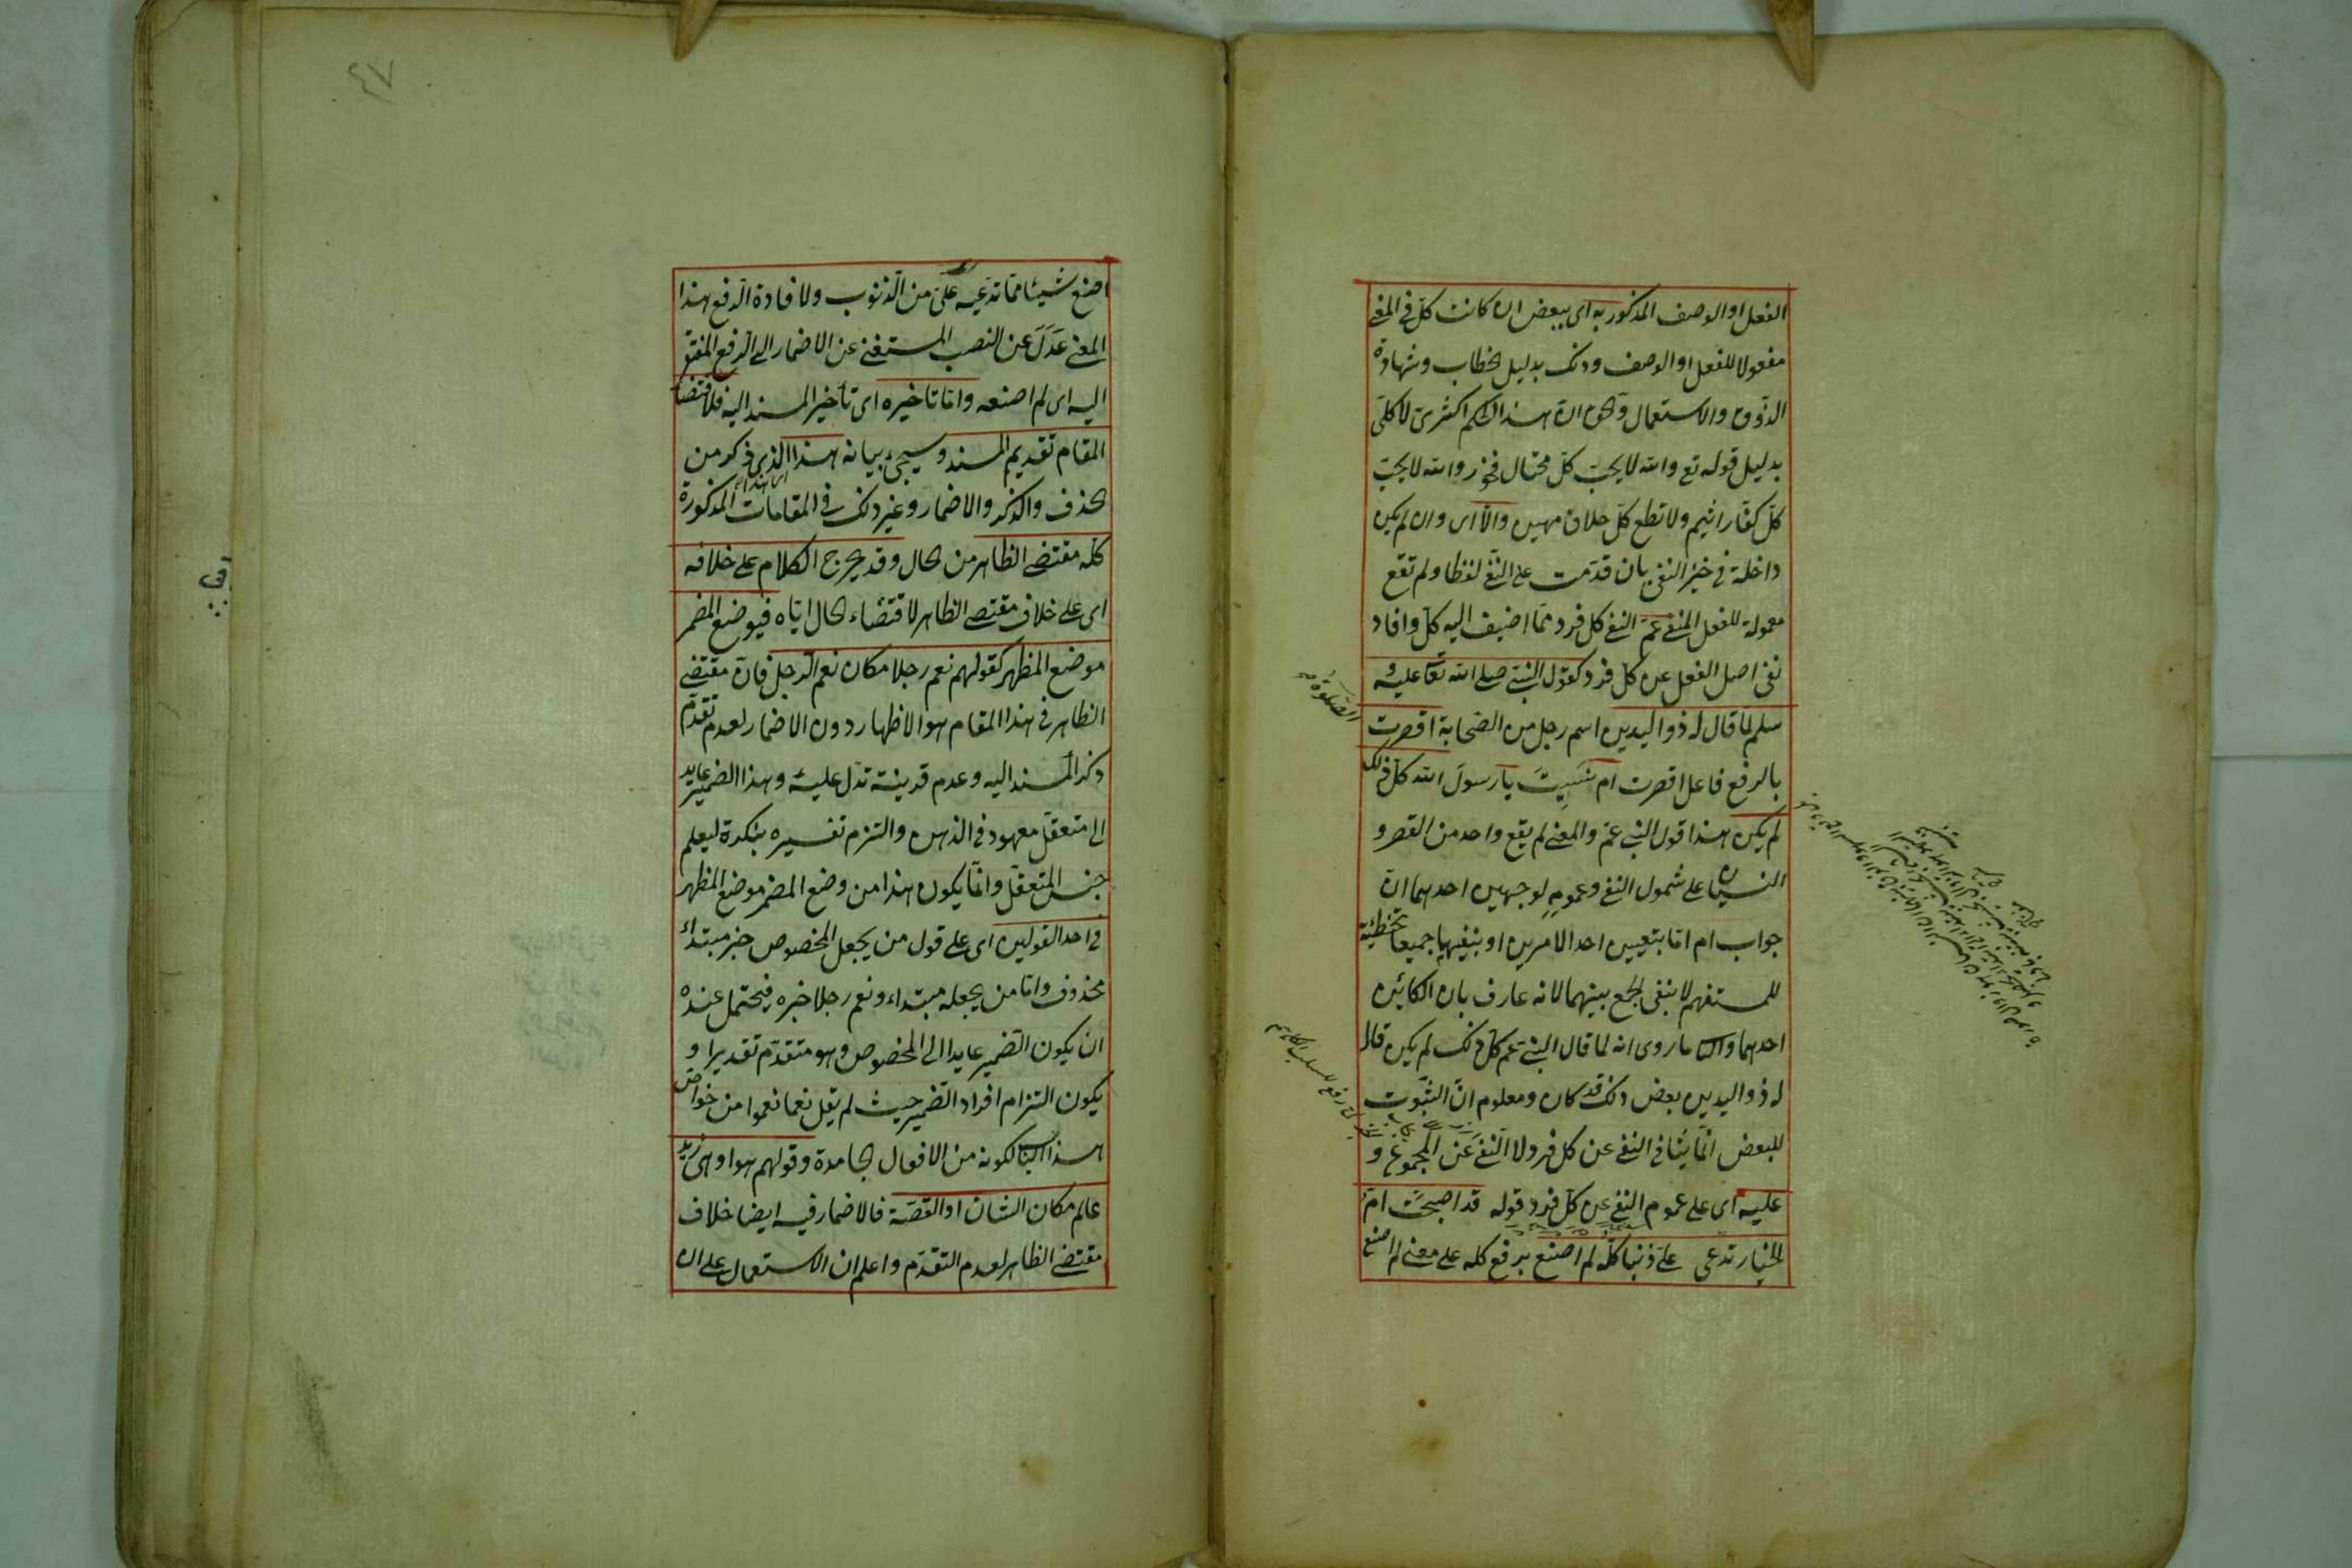 الفعل او الوصف المذكور به اى ببعض ان كانت كلّ فى المعنى
مفعولا للفعل او الوصف وذلك بدليل الخطاب وشهادة
الذوق والاستعمال والحق ان هذا الحكم اكثرى لا كلّى
بدليل قوله تع والله لا يحبّ كلّ مختال فخور والله لا يحبّ
كلّ كفّار اثيم ولا تطع كلّ حلاف مهين والّا اى وان لم يكن
داخلة فى حيّز النفى بان قدّمت على النفى لفظا ولم تقع
معمولة للفعل المنفى عمّ النفى كل فرد ممّا اضيف اليه كلّ وافاد
نفى اصل الفعل عن كلّ فرد كقول النبىّ صلى الله تعا عليه و
سلم لمّا قال له ذو اليدين اسم رجل من الصّحابة اقصرت
الصّلوة
بالرفع فاعل اقصرت ام نَسِيتَ يا رسولَ الله كلّ ذلك
لم يكن هذا قول النبى عم والمعنى لم يقع واحد من القصر و
النسيان على شمول النفى وعمومه لوجهين احدهما انّ
جواب ام امّا بتعيين احد الامرين او بنفيهما جميعا تخطئة
للمستفهم لا بنفى الجمع بينهما لانه عارف بان الكائن
احدهما والثانى ما روى انه لما قال النبى عم كلّ ذلك لم يكن قال
له ذو اليدين بعض ذلك قد كان ومعلوم انّ الثّبوت
للبعض انّما ينافى النفى عن كل فرد لا النّفى عن المجموع و
عليه اى على عموم النفى عن كلّ فرد قوله قد اصبحت امّ
الخيار تدّعى علىّ ذنبا كلّه لم اصنع برفع كله على معنى لم اصنع
اصنع شيئا ممّا تدّعيه علىّ من الذّنوب ولافادة الرفع هذا
المعنى عَدَلَ عن النصب المستغنى عن الاضمار الى الرفع المفتقر
اليه اى لم اصنعه وامّا تأخيره اى تأخير المسند اليه فلاقتضاء
المقام تقديم المسند وسيجىء بيانه هذا الذى ذكر من
الحذف والذكر والاضمار وغير ذلك فى المقامات المذكورة
كلّه مقتضى الظاهر من الحال وقد يخرج الكلام على خلافه
اى على خلاف مقتضى الظاهر لاقتضاء الحال ايّاه فيوضع المضمر
موضع المظهر كقولهم نعم رجلا مكان نعم الرّجل فانّ مقتضى
الظاهر فى هذا المقام هو الاظهار دون الاضمار لعدم تقدّم
ذكر المسند اليه وعدم قرينة تدلّ عليه وهذا الضمير عايد
الى متعقّل معهود فى الذهن والتزم تفسيره بنكرة ليعلم
جنس المتعقّل وانّما يكون هذا من وضع المضمر موضع المظهر
فى احد القولين اى على قول من يجعل المخصوص خبر مبتداء
محذوف وامّا من يجعله مبتداء ونعم رجلا خبره فيحتمل عنده
ان يكون الضّمير عايدا الى المخصوص وهو متقدّم تقديرا و
يكون التزام افراد الضّمير حيث لم يقل نعما نعموا من خواصّ
هذا الباب لكونه من الافعال الجامدة وقولهم هو او هى زيد
عالم مكان الشان او القصّة فالاضمار فيه ايضا خلاف
مقتضى الظاهر لعدم التقدّم واعلم ان الاستعمال على ان